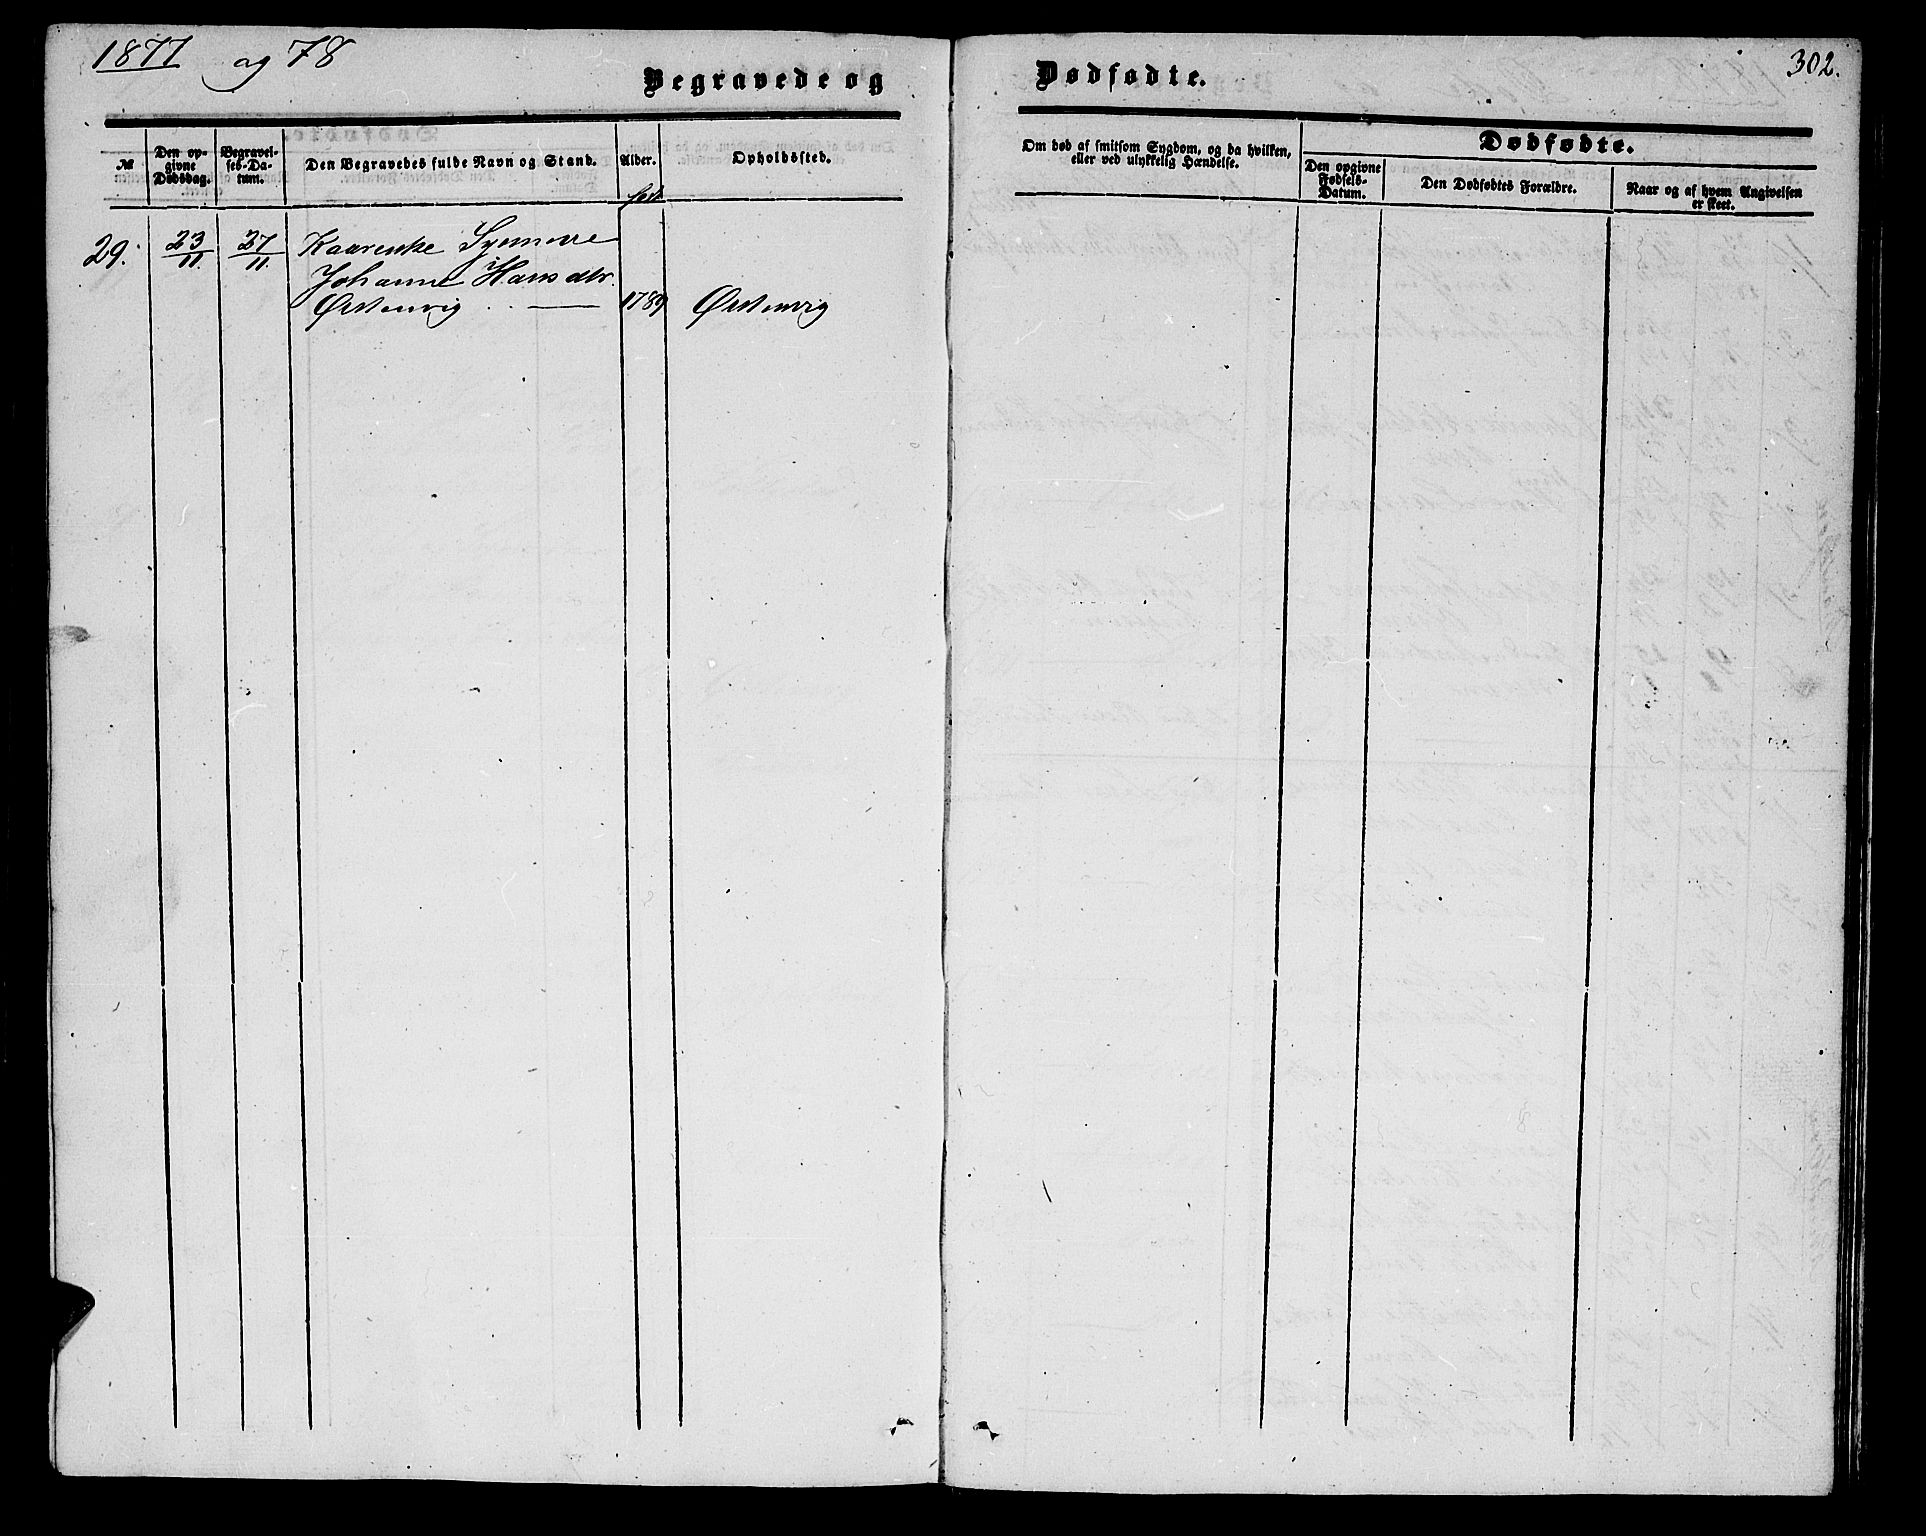 1877 og 78
302.
Begravede og Dødfødte.
№
Den op-
givne
Dødsdag.
Begravel-
ses-Da-
tum.
Den Begravedes fulde Navn og Stand.
Alder.
Opholdssted.
Om død af smitsom Sygdom, og da hvilken,
eller ved ulykkelig Hændelse.
Dødfødte.
Den opgivne
Fødsels-
Datum.
Den Dødfødtes Forældre.
Naar og af hvem Angivelsen
er skeet.
født
29. 23/11. 27/11. Kaarenke Synneve
Johanne Hansdtr.
Ørstenvig 1789 Ørstenvig